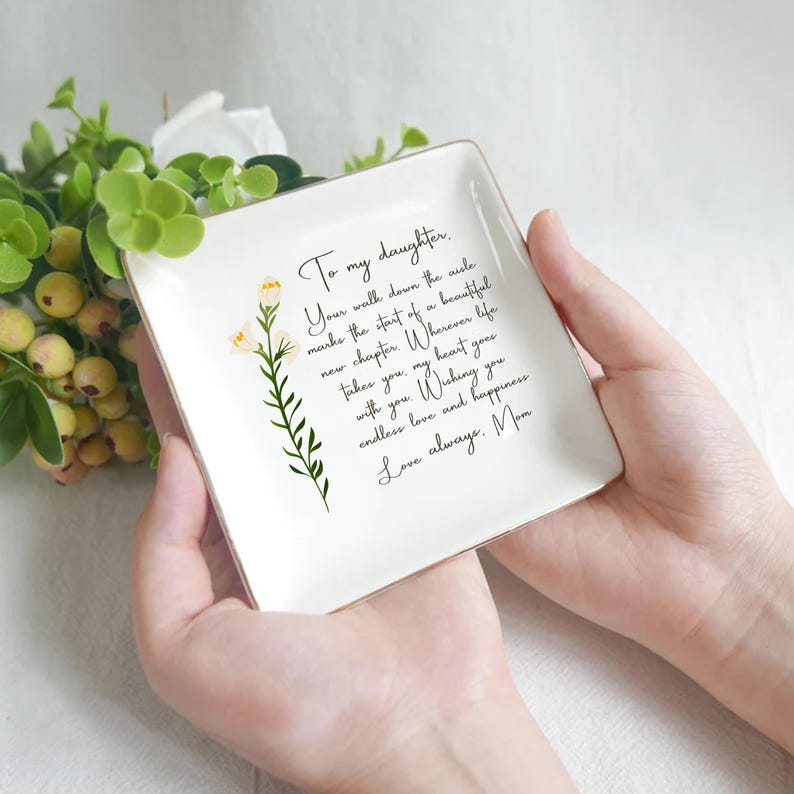 To my daughter,
Your walk down the aisle
marks the start of a beautiful
new chapter. Wherever life
takes you, my heart goes
with you. Wishing you
endless love and happiness
Love always, Mom